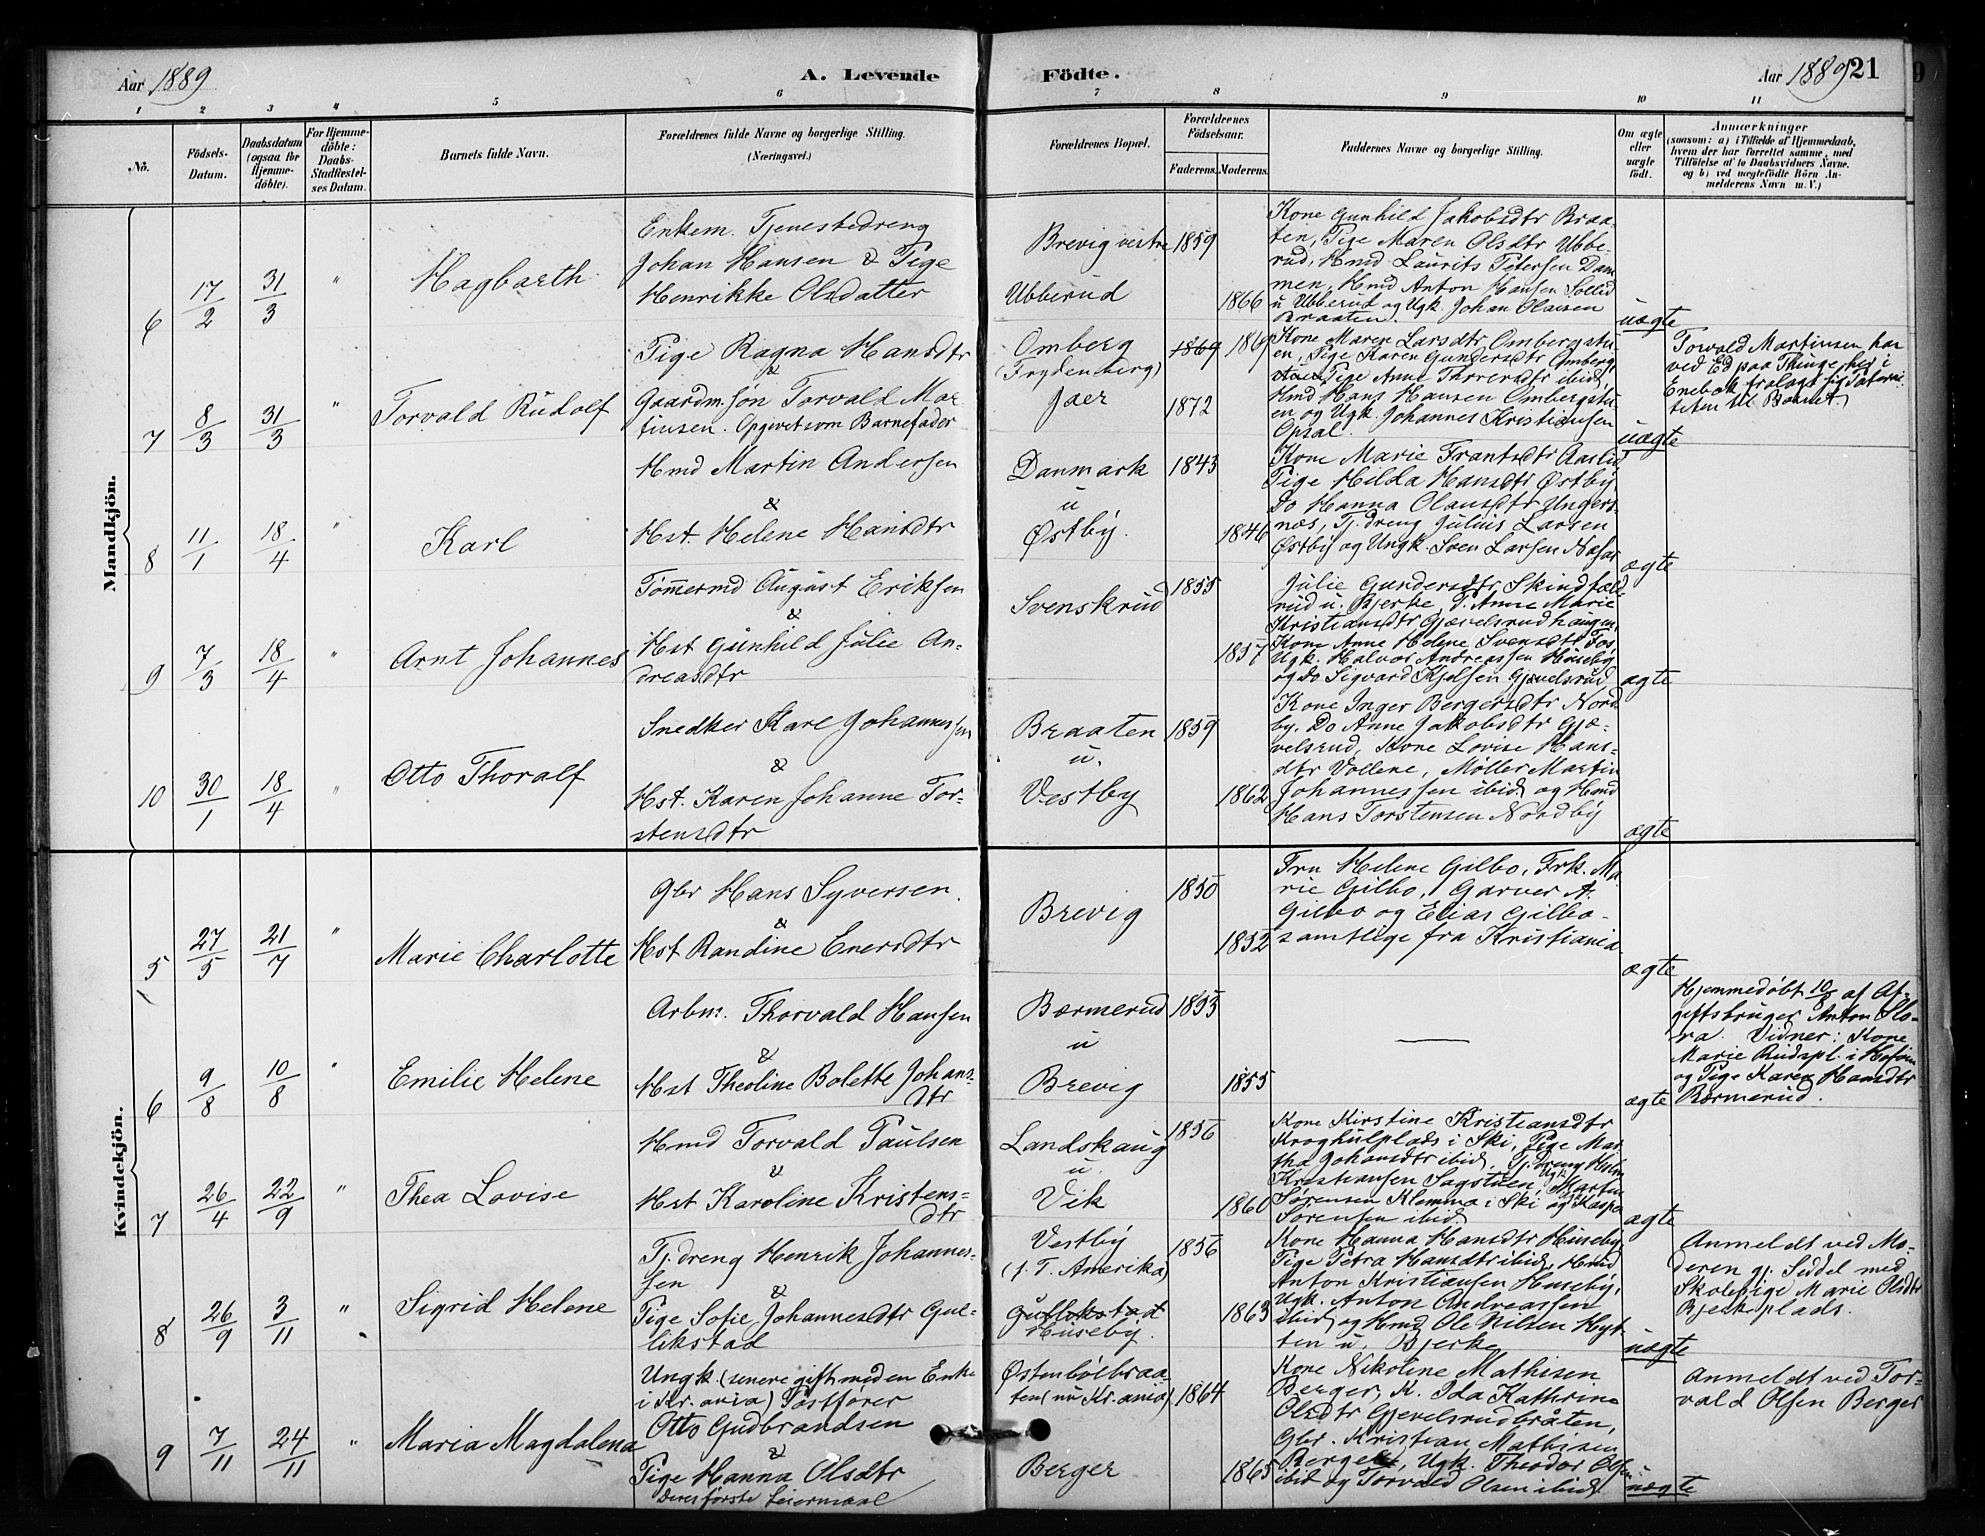 Aar 1889
A. Levende
Födte.
Aar 1889
21
1 2 3 4 5 6 7 8 9 10 11
No.
Födsels-
Datum.
Daabsdatum
(ogsaa for
Hjemme-
döbte).
For Hjemme-
döbte:
Daabs-
Stadfæstel-
ses Datum.
Barnets fulde Navn.
Forældrenes fulde Navne og borgerlige Stilling.
(Næringsvei.)
Forældrenes Bopæl.
Forældrenes
Födselsaar.
Faderens.
Moderens.
Faddernes Navne og borgerlige Stilling.
Om ægte
eller
uægte
födt.
Anmærkninger
(saasom: a) i Tilfælde af Hjemmedaab,
hvem der har forrettet samme, med
Tilföielse af to Daabsvidners Navne.
og b) ved uægtefödte Börn An-
melderens Navn m. V.)
Mandkjön.
6
17/2
31/3
"
Hagbarth
Enkem. Tjenestedreng
Johan Hansen & Pige
Henrikke Olsdatter
Brevig vestre
Ubberud
1859
1866
Kone Gunhild Jakobsdtr Braa-
ten, Pige Maren Olsdtr Ubbe-
rud, Hmd Laurits Petersen Dam-
men, Hmd Anton Hansen Sollid
u Ubberud og Ugk. Johan Olausen
Braaten.
uægte
7
8/3
31/3
"
Torvald Rudolf
Pige Ragna Hansdtr
&
Gaardm.søn Torvald Mar-
tinsen. Opgivet som Barnefader
Omberg
(Frydenberg)
Jaer
1869
1869
1872
Kone Maren Larsdtr Ombergstu-
en, Pige Karen Gundersdtr Omberg
stuen Pige Anne Thorersdtr ibid,
Hmd Hans Hansen Ombergstu-
en og Ugk. Johannes Kristiansen
Opsal.
uægte
Torvald Martinsen har
ved Ed paa Thinget i
Enebak fralagt sig Paterni-
teten til Barnet.
8
11/1
18/4
"
Karl
Hmd Martin Andersen
&
Hst. Helene Hansdtr
Danmark
u
Østby.
1843
1846
Kone Marie Frantsdtr Aaslid
Pige Hilda Hansdtr Østby,
Do Hanna Olausdtr Ungers-
næs, Tj.dreng Julius Larsen
Østby og Ungk. Sven Larsen
ægte
9
7/3
18/4
"
Arnt Johannes
Tømmermd August Eriksen
&
Hst Gunhild Julie An-
dreasdtr
Svenskrud
1855
1857
Julie Gundersdtr Skindfæld-
rud u. Bjerke, P. Anne Marie
Kristiansdtr Gjævelsrudhaugen,
Kone Anne Helene Svensdtr Fos
Ugk. Halvor Andreassen Huseby
og Do Sigvard Kjelsen Gjævelsrud
ægte
10
30/1
18/4
"
Otto Thoralf
Snedker Karl Johannessen
&
Hst. Karen Johanne Tor-
stensdtr
Braaten
u.
Vestby
1859
1862
Kone Inger Bergersdtr Nord-
by, Do Anne Jakobsdtr Gjæ-
velsrud, Kone Lovise Hans-
dtr Vollene, Møller Martin
Johannessen ibid og Hmd
Hans Torstensen Nordby
ægte
Kvindekjön.
5
27/5
21/7
"
Marie Charlotte
Gbr Hans Syversen.
&
Hst Randine Enersdtr
Brevig
1850
1852
Fru Helene Gilbo, Frk. Ma-
rie Gilbo, Garver A.
Gilbo og Elias Gilbo -
samtlige fra Kristiania.
ægte
6
9/8
10/8
"
Emilie Helene
Arbm. Thorvald Hansen
&
Hst Theoline Bolette Johans-
dtr
Bærmerud
u
Brevig
1853
1855
—
ægte
Hjemmedøbt 10/8 af Af-
giftsbruger Anton Flo-
ra. Vidner: Kone
Marie Rudspl. i
og Pige Karen Hansdtr
Bærmerud.
7
26/4
22/9
"
Thea Lovise
Hmd Torvald Paulsen
&
Hst Karoline Kristens-
dtr
Landskaug
u.
Vik
1856
1860
Kone Kirstine Kristiansdtr
Kroghulplads i Ski, Pige Mar-
tha Johansdtr ibid, Tj.dreng
Kristiansen Sagstuen, Ugk. Martin
Sørensen Klemma i Ski og Kasper
Sørensen ibid.
ægte
8
26/9
3/11
"
Sigrid Helene
Tj.dreng Henrik Johannes-
sen
&
Pige Sofie Johannesdtr Gul-
likstad
Vestby
(f. T. Amerika)
Gullikstad
Huseby.
1856
1863
Kone Hanna Hansdtr Huseby
Pige Petra Hansdtr ibid, Hmd
Anton Kristiansen Huseby,
Ugk. Anton Andreassen
ibid og Hmd Ole Nilsen Hyt-
ten u. Bjerke
uægte
Anmeldt ved Mo-
deren gj. Seddel med
Skolepige Marie Olsdtr
Bjerkeplads.
9
7/11
24/11
"
Maria Magdalena
Ungk. (senere gift med en Enke
i Kr.ania) Postfører
Otto Gudbrandsen
&
Pige Hanna Olsdtr
Deres første Leiermaal
Østenbølbraa-
ten (nu Kr.ania)
Berger
1864
1865
Kone Nikoline Mathisen
Berger, K. Ida Kathrine
Olsdtr Gjevelsrudbråten,
Gbr. Kristian Mathisen
Berger, Ugk. Theodor Olsen
ibid og Torvald Olsen ibid.
uægte
Anmeldt ved Tor-
vald Olsen Berger